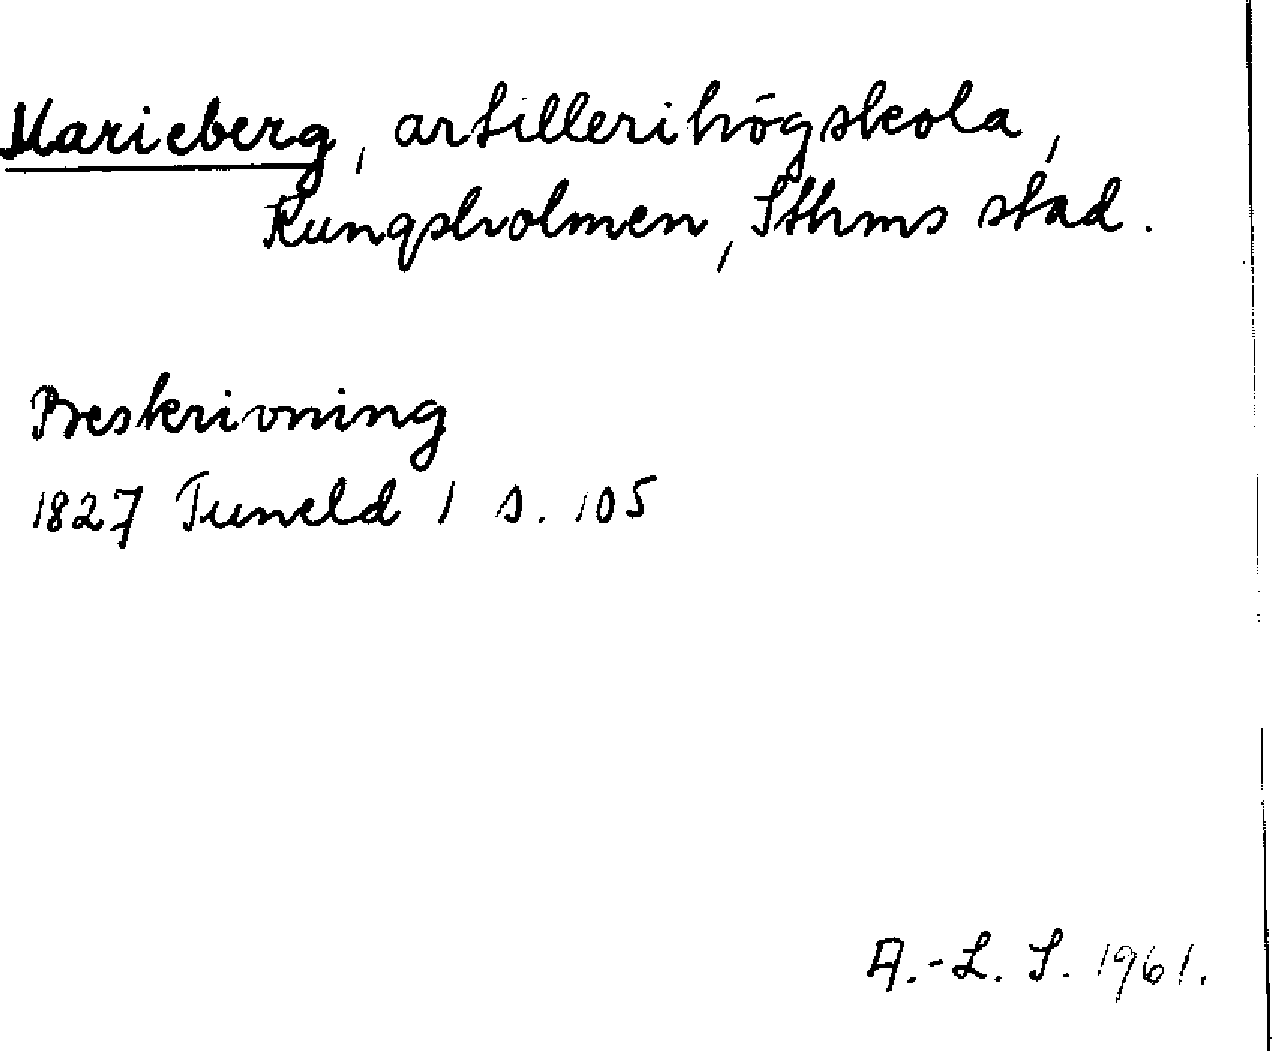 Marieberg, artillerihögskola,
Kungsholmen, Sthms stad.
Beskrivning
1827 Tuneld 1 s. 105
A.-L. S. 1961.